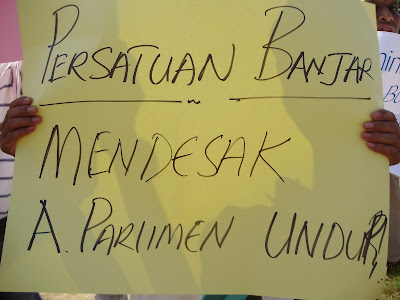 PERSATUAN BANJAR
MENDESAK
A. PARLIMEN UNDUR!